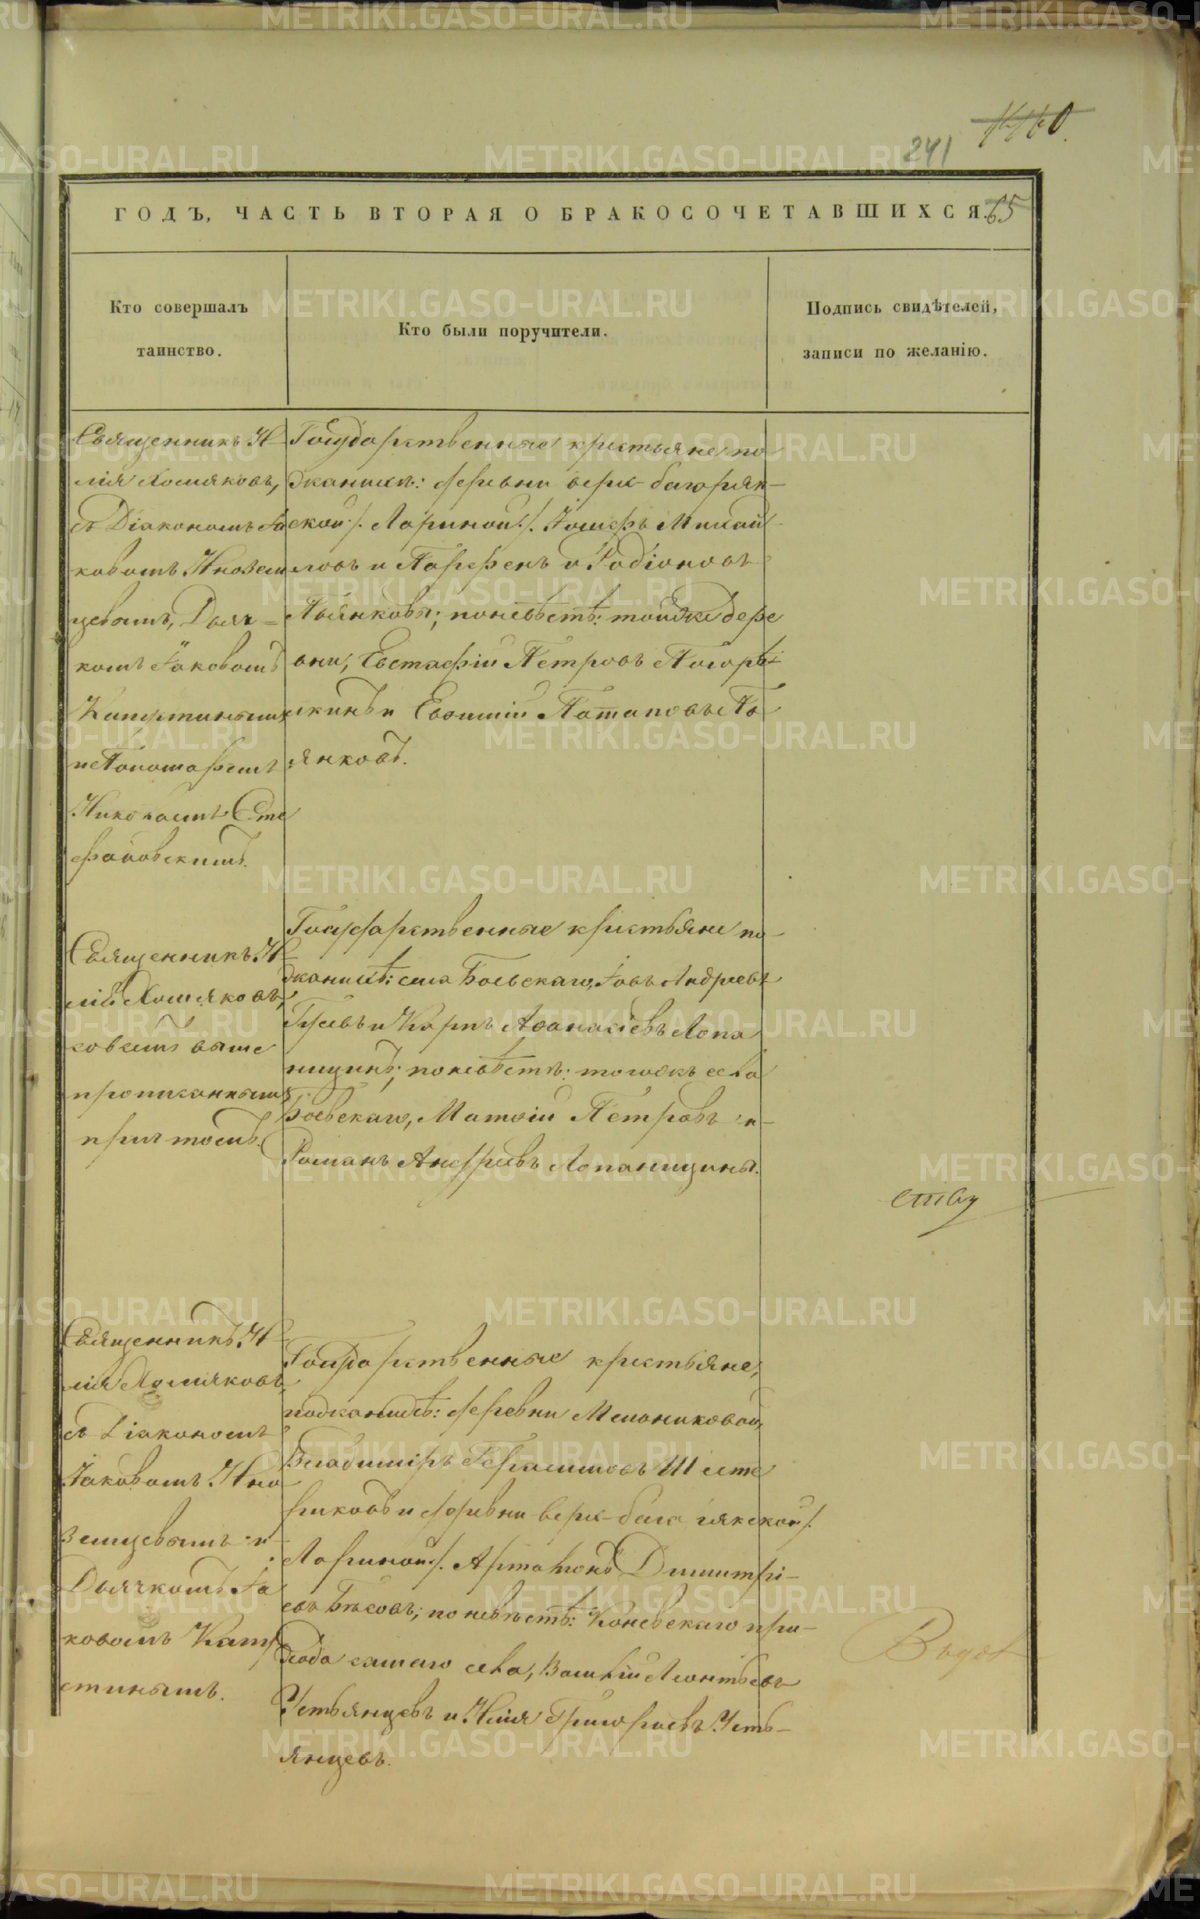 241
65
ГОДЪ, ЧАСТЬ ВТОРАЯ О БРАКОСОЧЕТАВШИХСЯ.
Кто совершалъ
таинство.
Кто были поручители.
Подпись свидѣтелей,
записи по желанію.
Священникъ И-
лія Хомяковъ,
съ Діакономъ Іа
ковомъ Инозем
цевымъ, Дьяч-
комъ Іаковомъ
Капустинымъ
и Пономаремъ
Николаемъ Сте
фановскимъ.
Государственные крестьяне по
женихѣ: деревни верх-багоряк-
ской /: Лариной :/ Іосифъ Михай
ловъ и Парфенъ Родіоновъ
Пьянковы; по невѣстѣ: тойже дере
вни, Евстафій Петровъ
и Евфимій Потаповъ Пь
янковъ.
Священникъ И-
лія Хомяковъ,
со всѣмъ выше
прописаннымъ
причтомъ.
Государственные крестьяне по
женихѣ: села Боевскаго, Іовъ Андреевъ
Гусевъ и Карпъ Аѳанасіевъ Лопа
ницинъ; по невѣстѣ: тогожъ села
Боевскаго, Матѳій Петровъ и
Романъ Андреевъ Лопаницины.
ству
Священникъ И-
лія Хомяковъ,
съ Діакономъ
Іаковомъ Ино
земцевымъ и
Дьячкомъ Іа
ковомъ Капу
стинымъ.
Государственные крестьяне,
по женихѣ: деревни
Владиміръ Герасимовъ Шесте
риковъ и деревни верх-багарякской /:
Лариной :/ Артамонъ Димитрі-
евъ Бѣсовъ; по невѣстѣ: Коневскаго при-
хода самаго села, Василій Леонтьевъ
Устьянцевъ и Илія Григорьевъ Усть-
янцевъ.